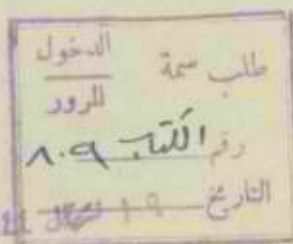 طلب سمة الدخول
للرور
رقم الكتاب ٨٠٩
التاريخ ١٩